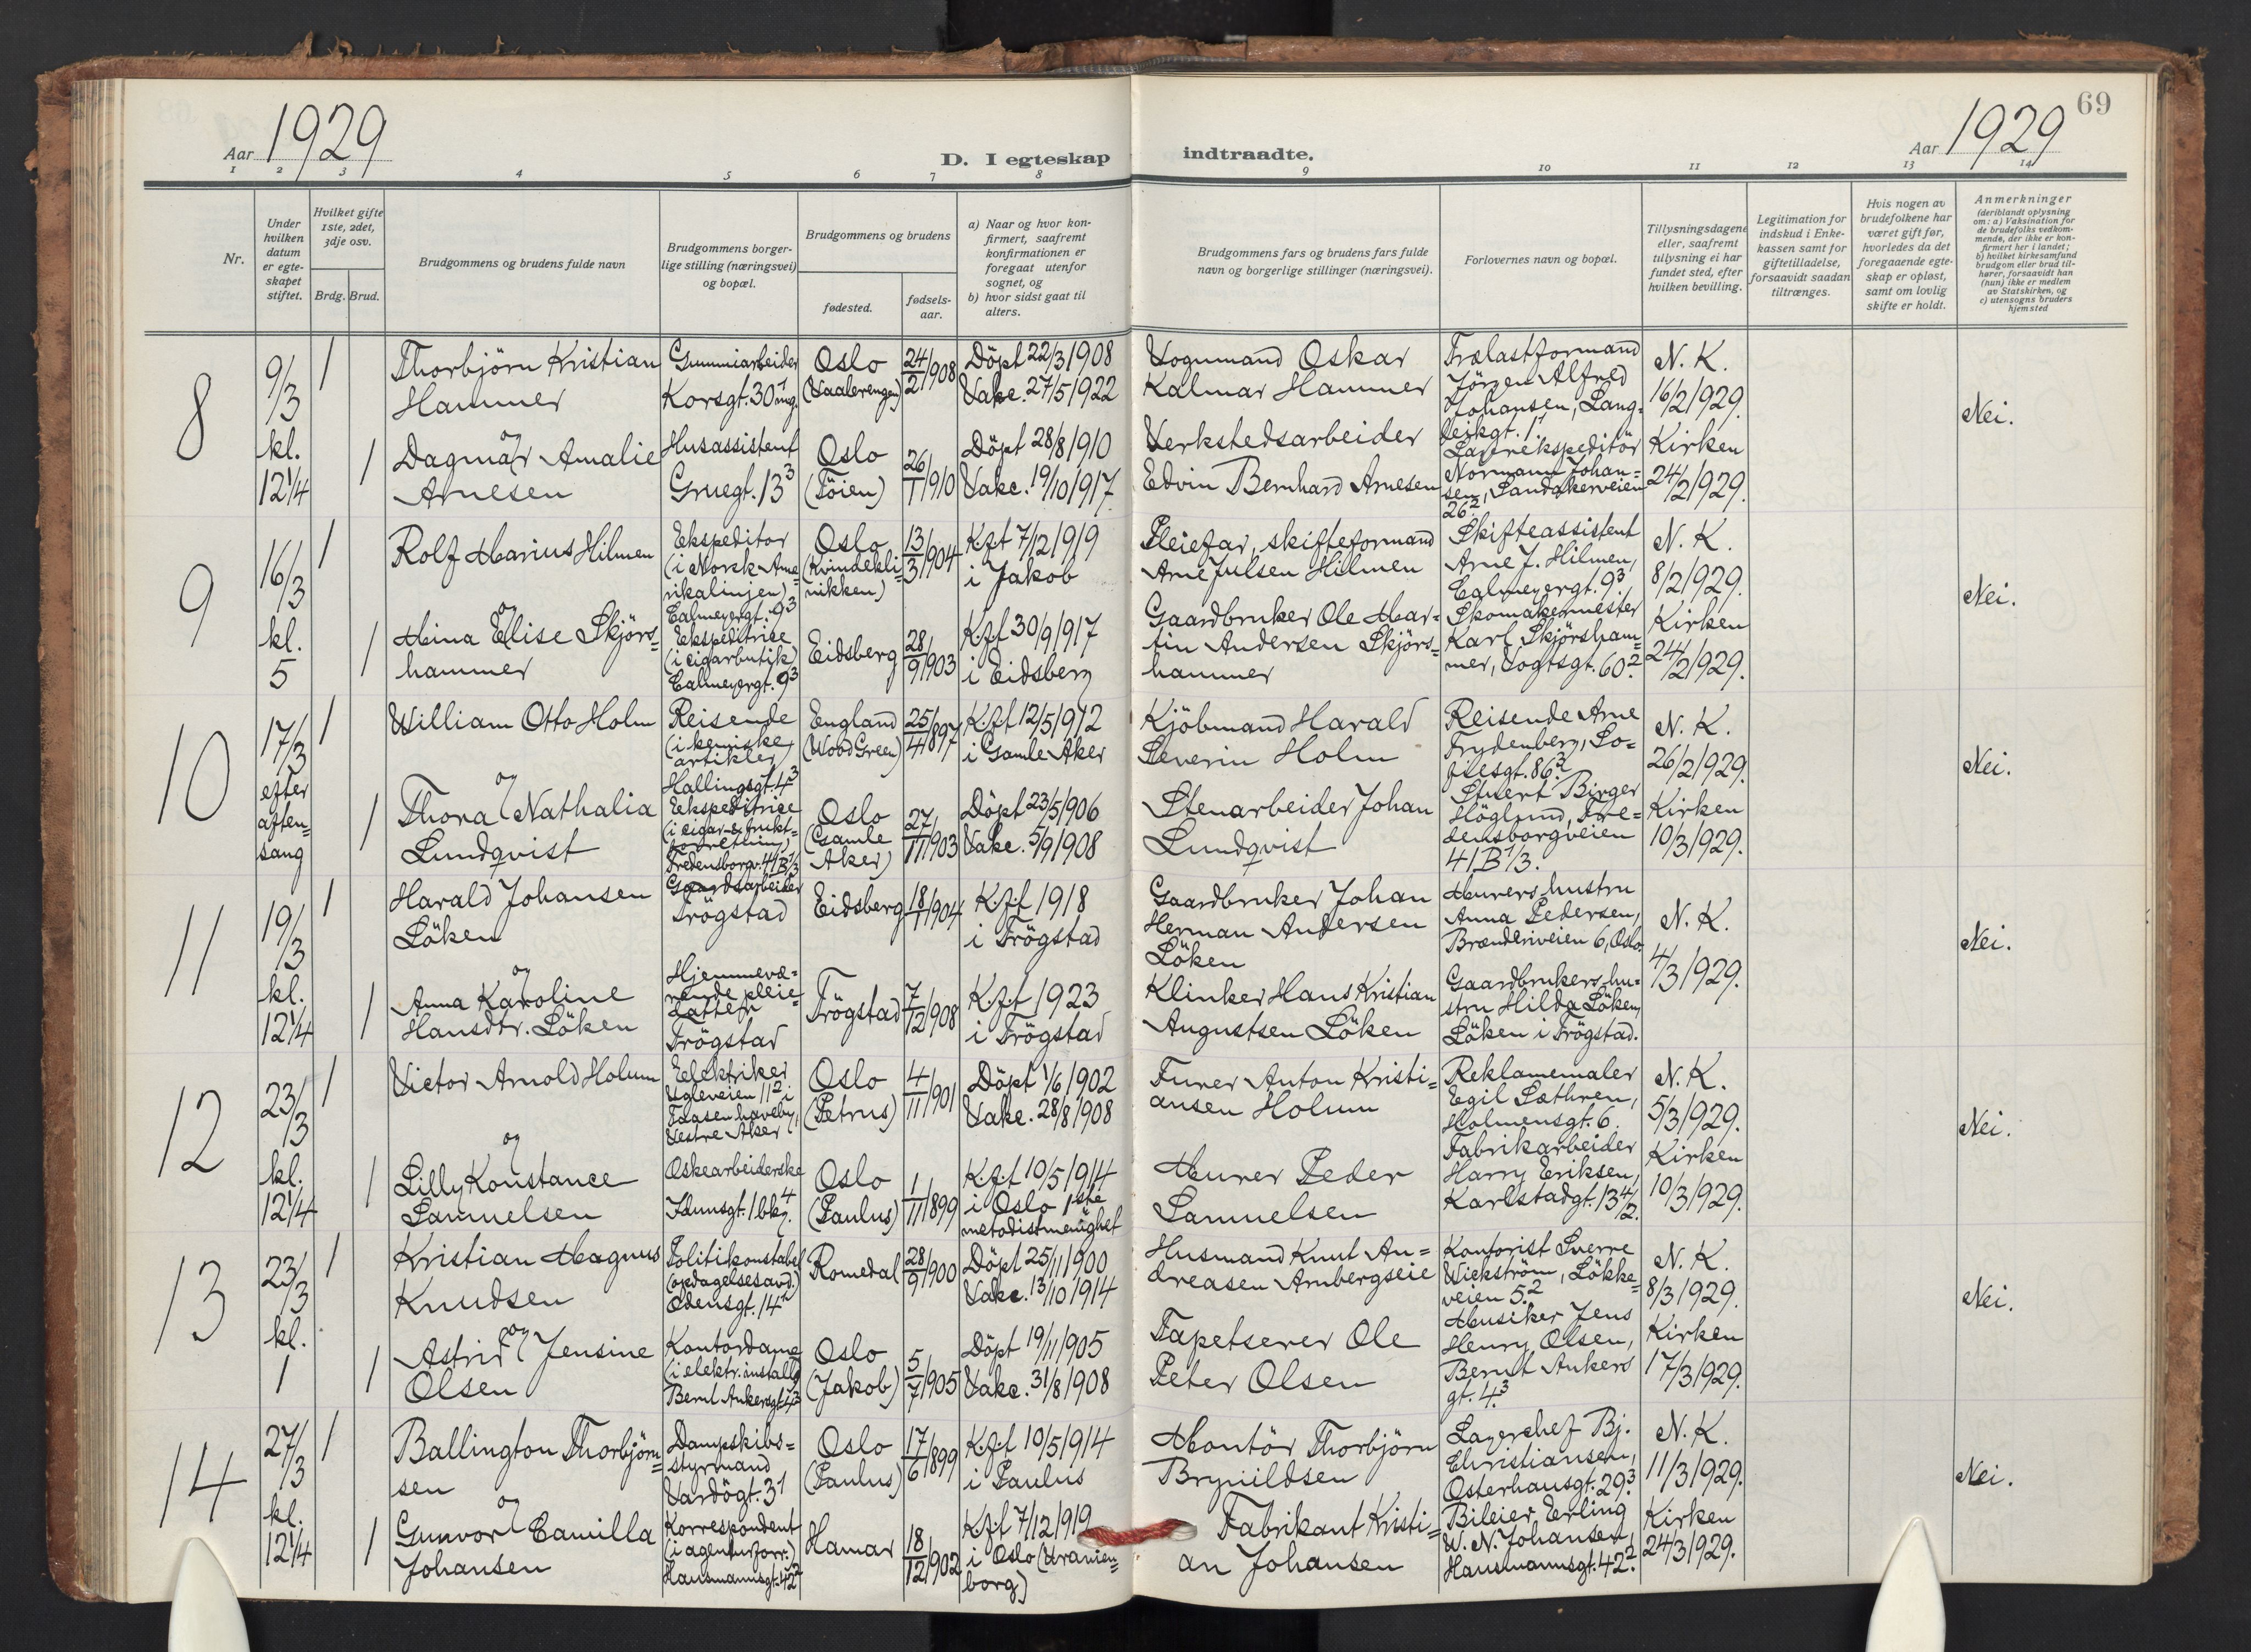 69
Aar 1929
D. I egteskap indtraadte.
Aar 1929
1 2 3 4 5 6 7 8 9 10 11 12 13 14
Nr.
Under hvilken datum er egteskapet stiftet.
Hvilket gifte 1ste, 2det, 3dje osv.
Brdg. Brud.
Brudgommens og brudens fulde navn
Brudgommens borgerlige stilling (næringsvei) og bopæl.
Brudgommens og brudens
fødested.
fødsels-aar.
a) Naar og hvor konfirmert, saafremt konfirmationen er foregaat utenfor sognet, og
b) hvor sidst gaat til alters.
Brudgommens fars og brudens fars fulde navn og borgerlige stillinger (næringsvei).
Forlovernes navn og bopæl.
Tillysningsdagene eller, saafremt tillysning ei har fundet sted, efter hvilken bevilling.
Legitimation for indskud i Enkekassen samt for giftetilladelse, forsaavidt saadan tiltrænges.
Hvis nogen av brudefolkene har været gift før, hvorledes da det foregaaende egteskap er opløst, samt om lovlig skifte er holdt.
Anmerkninger
(deriblandt oplysning om: a) Vaksination for de brudefolks vedkommende, der ikke er konfirmert her i landet;
b) hvilket kirkesamfund brudgom eller brud tilhører, forsaavidt han (hun) ikke er medlem av Statskirken, og
c) utensogns bruders hjemsted
8
9/3
kl.
12 1/4
1
Thorbjörn Kristian
Hammer
Gummiarbeider
Korsgt. 30 1 ing.
Oslo
(Vaalerengen)
24/2 1908
Döpt 22/3 1908
Vakc. 27/5 1922
Vognmand Oskar
Kalmar Hammer
Trælastformand
Jörgen Alfred
Johansen, Lang-
leikgt. 1
N. K.
16/2 1929.
Nei.
1
og
Dagmar Amalie
Arnesen
Husassistent
Gruegt. 13 3
Oslo
(Töien)
26/1 1910
Döpt 28/8 1910
Vakc. 19/10 1917
Verkstedsarbeider
Edvin Bernhard Arnesen
Lagerekspeditör
Normann Johan-
sen, Sandakerveien
26 2
Kirken
24/2 1929.
9
16/3
kl.
5
1
Rolf Marius Hilmen
Ekspeditor
(i Norsk Ame-
rikalinjen)
Calmeyergt. 9 3
Oslo
(Kvindekli-
nikken)
13/3 1904
Kft 7/12 1919
i Jakob
Pleiefar, skifteformand
Arne Julsen Hilmen
Skifteassistent
Arne J. Hilmen,
Calmeyergt. 9 3
N. K.
8/2 1929.
Nei.
1
og
Mina Elise Skjörs-
hammer
Ekspeditrise
(i cigarbutik)
Calmeyergt. 9 3
Eidsberg
28/9 1903
Kft 30/9 1917
i Eidsberg
Gaardbruker Ole Mar-
tin Andersen Skjörs-
hammer
Skomakermester
Karl Skjörsham-
mer, Vogtsgt. 60 2
Kirken
24/2 1929.
10
17/3
efter
aften-
sang
1
William Otto Holm
Reisende
(i kemiske
artikler)
Hallingsgt. 4 3
England
(Wood Green)
25/4 1897
Kft 12/5 1912
i Gamle Aker
Kjöbmand Harald
Severin Holm
Reisende Arne
Frydenberg, So-
fiesgt. 86 3
N. K.
26/2 1929.
Nei.
1
og
Thora Nathalia
Lundqvist
Ekspeditrise
(i cigar- & frukt-
forretning)
Fredensborgv. 41 B 1/3
Oslo
(Gamle
Aker)
27/11 1903
Döpt 23/5 1906
Vakc. 5/9 1908
Stenarbeider Johan
Lundqvist
Stuert Birger
Höglund, Fre-
densborgveien
41 B 1/3.
Kirken
10/3 1929.
11
19/3
kl.
12 1/4
1
Harald Johansen
Löken
Gaardsarbeider
Trögstad
Eidsberg
18/1 1904
Kft 1918
i Trögstad
Gaardbruker Johan
Herman Andersen
Löken
Murers hustru
Anna Pedersen,
Brænderiveien 6, Oslo.
N. K.
4/3 1929.
Nei.
1
og
Anna Karoline
Hansdtr. Löken
Hjemmevæ-
rende pleie-
datter
Trögstad
Trögstad
7/12 1908
Kft 1923
i Trögstad
Klinker Hans Kristian
Augustsen Löken
Gaardbrukers hu-
stru Hilda Löken,
Löken i Trögstad.
12
23/3
kl.
12 1/4
1
Victor Arnold Holum
Elektriker
Ugleveien 11 2 i
Taasen haveby,
Vestre Aker
Oslo
(Petrus)
4/11 1901
Döpt 1/6 1902
Vakc. 28/8 1908
Furer Anton Kristi-
ansen Holum
Reklamemaler
Egil Sæthren,
Holmensgt. 6.
N. K.
5/3 1929.
Nei.
1
og
Lilly Konstance
Samuelsen
Eskearbeiderske
Idunsgt. 1 bkg. 4
Oslo
(Paulus)
1/11 1899
Kft 10/5 1914
i Oslo 1ste
metodistmenighet
Murer Peder
Samuelsen
Fabrikarbeider
Harry Eriksen,
Karlstadgt. 13 4/2.
Kirken
10/3 1929.
13
23/3
kl.
1
1
Kristian Magnus
Knudsen
Politikonstabel
(opdagelsesavd.)
Odensgt. 14 2
Romedal
28/9 1900
Döpt 25/11 1900
Vakc. 13/10 1914
Husmand Knut An-
dreasen Arnbergseie
Kontorist Sverre
Wickström, Lökke-
veien 5. 2
N. K.
8/3 1929.
Nei.
1
og
Astrid Jensine
Olsen
Kontordame
(i elektr. install.)
Bernt Ankersgt. 4 3
Oslo
(Jakob)
5/7 1905
Döpt 19/11 1905
Vakc. 31/8 1908
Tapetserer Ole
Peter Olsen
Musiker Jens
Henry Olsen,
Bernt Ankers
gt. 4. 3
Kirken
17/3 1929.
14
27/3
kl.
12 1/4
1
Ballington Thorbjörn-
sen
Dampskibs-
styrmand
Vardögt. 3 1
Oslo
(Paulus)
17/6 1899
Kft 10/5 1914
i Paulus
Montör Thorbjörn
Brynildsen
Lagerchef Bj.
Christiansen,
Osterhausgt. 29. 3
N. K.
11/3 1929.
Nei.
1
og
Gunvor Camilla
Johansen
Korrespondent
(i agenturforr.)
Hausmannsgt. 42 2
Hamar
18/12 1902
Kft 7/12 1919
i Oslo (Uranien-
borg)
Fabrikant Kristi-
an Johansen
Bileier Erling
W. N. Johansen,
Hausmannsgt. 42 2.
Kirken
24/3 1929.